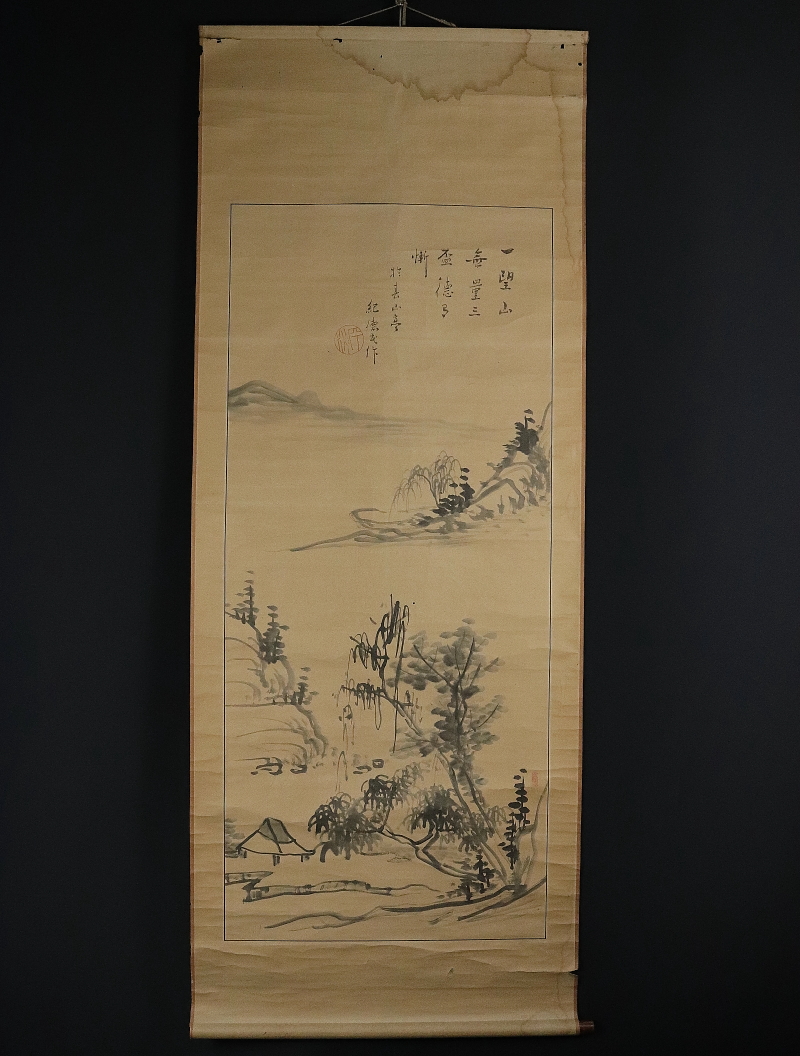 一望山
無量三
盃徳有
慚
於春山亭
紀徳民作